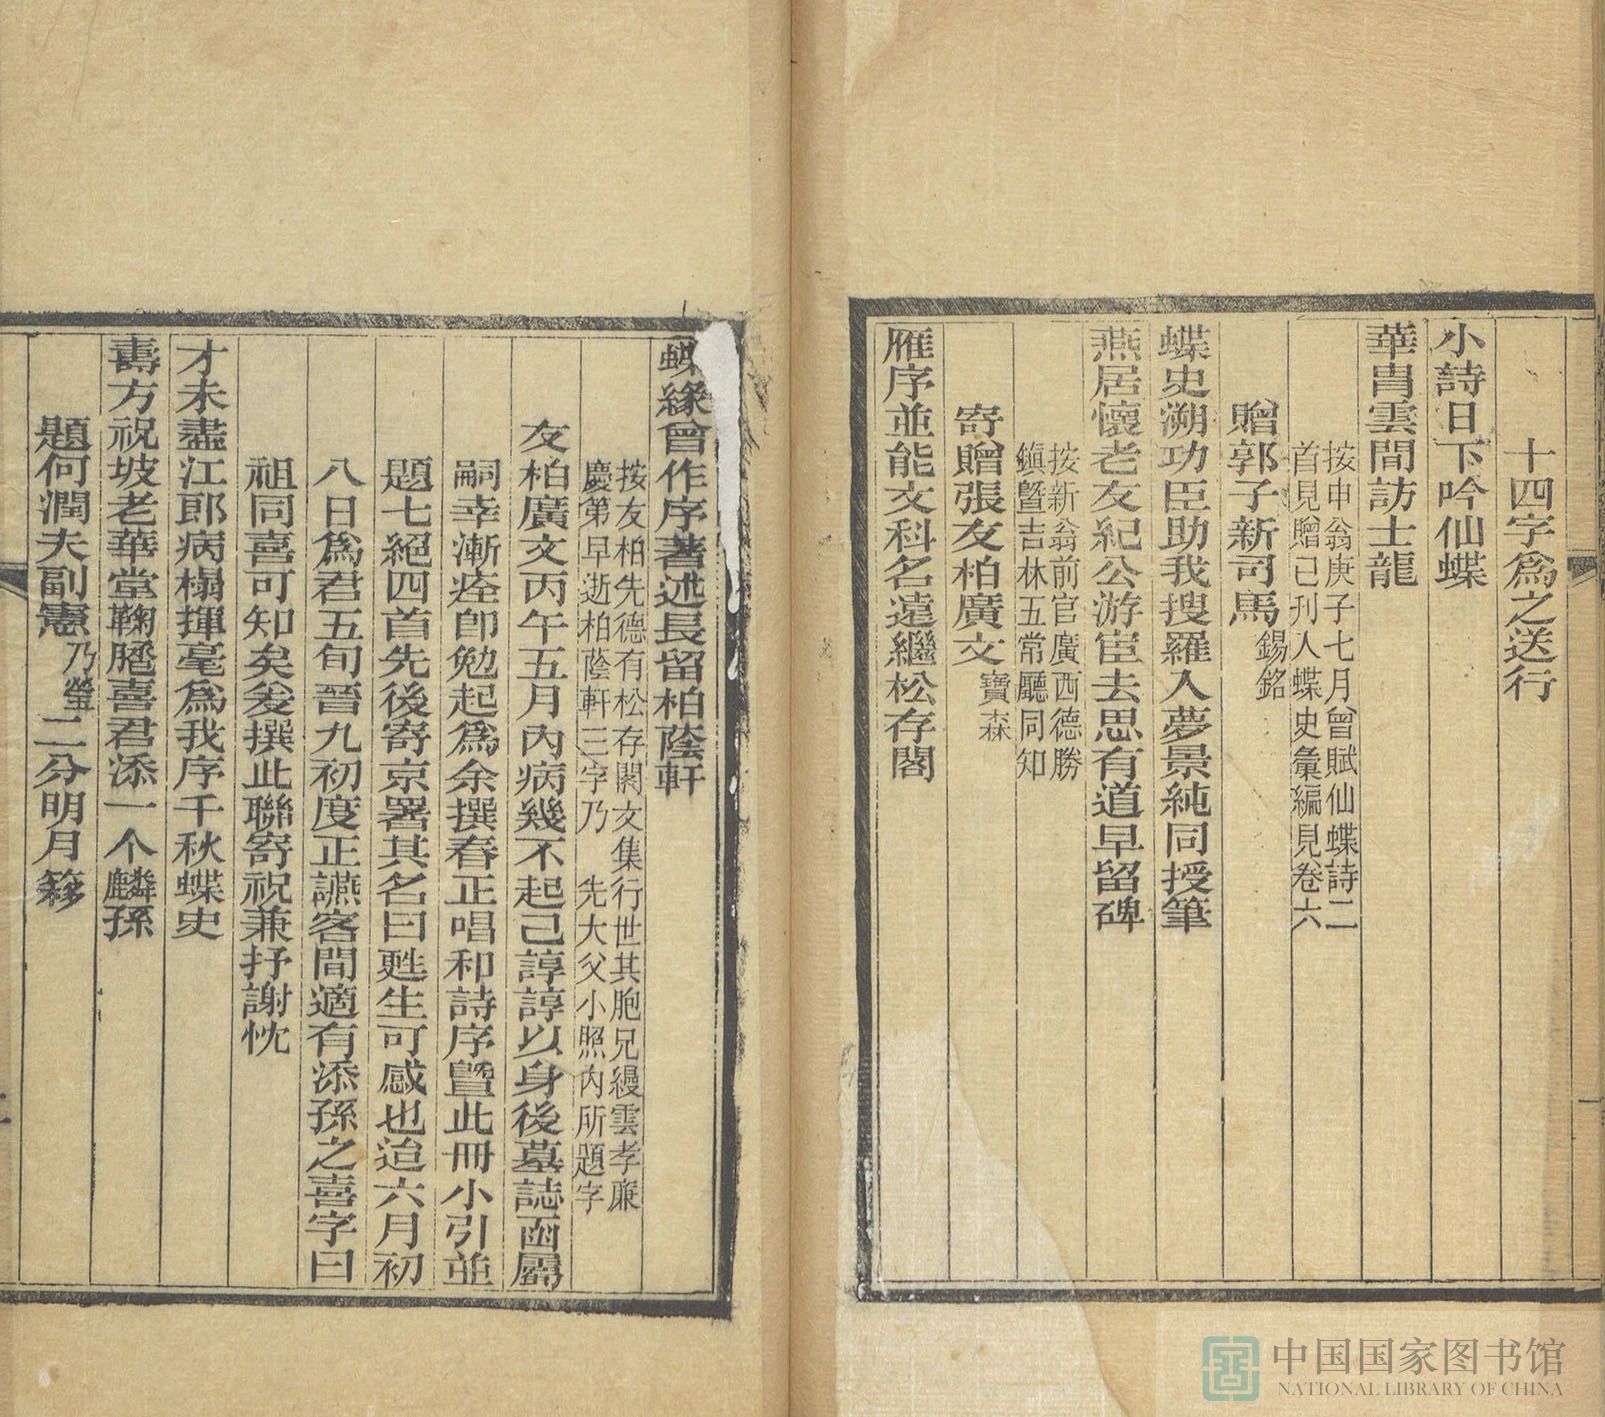 十四字爲之送行
小詩日下吟仙蝶
華胄雲間訪士龍
按申翁庚子七月曾賦仙蝶詩二
首見贈已刋入蝶史彙編見卷六
贈郭子新司馬錫銘
蝶史溯功臣助我搜羅入夢景純同授筆
燕居懷老友紀公游宦去思有道早留碑
按新翁前官廣西德勝
鎭曁吉林五常廳同知
寄贈張友柏廣文寶森
雁序並能文科名遠繼松存閣
蝶緣曾作序著述長留柏蔭軒
按友柏先德有松存閣文集行世其胞兄縵雲孝廉
慶第早逝柏蔭軒三字乃 先大父小照內所題字
友柏廣文丙午五月內病幾不起己諄諄以身後墓誌函屬
嗣幸漸痊卽勉起爲余撰春正唱和詩序曁此冊小引並
題七絕四首先後寄京署其名曰甦生可感也迨六月初
八日爲君五旬晉九初度正讌客間適有添孫之喜字曰
祖同喜可知矣爰撰此聯寄祝兼抒謝忱
才未盡江郎病榻揮毫爲我序千秋蝶史
壽方祝坡老華堂鞠䠒喜君添一个麟孫
題何潤夫副憲乃瑩二分明月簃
中国国家图书馆
NATIONAL LIBRARY OF CHINA